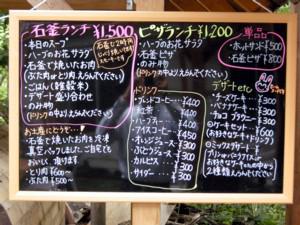 石窯ランチ ¥1,500
・本日のスープ
・ハーブの花サラダ
・石窯で焼いたお肉
(ぶた肉orとり肉えらんでください)
・ごはん(雑穀米)
・デザート盛り合わせ
・のみ物
(ドリンクの中よりえらんでください)
お土産にどうぞ…!
石窯で焼いたお肉を冷凍
真空パックしました。ご自宅でも
おいしく頂けます
・とり肉 ¥600〜
・ぶた肉 ¥500〜
ピザランチ ¥1,200
・ハーブの花サラダ
・石窯ピザ
・のみ物
(ドリンクの中よりえらんでください)
ドリンク
・ブレンドコーヒー ¥400
・紅茶 ¥400
・アイスコーヒー ¥450
・オレンジジュース ¥300
・ぶどうジュース ¥300
・カルピス ¥300
・サイダー ¥300
単品
・ホットサンド ¥500
・石窯ピザ ¥800
デザートetc
・チーズケーキ ¥300
・バナナケーキ ¥300
・チョコブラウニー ¥300
◎ケーキセット ¥600
(お好きなドリンク付)
◎ミックスデザート ¥500